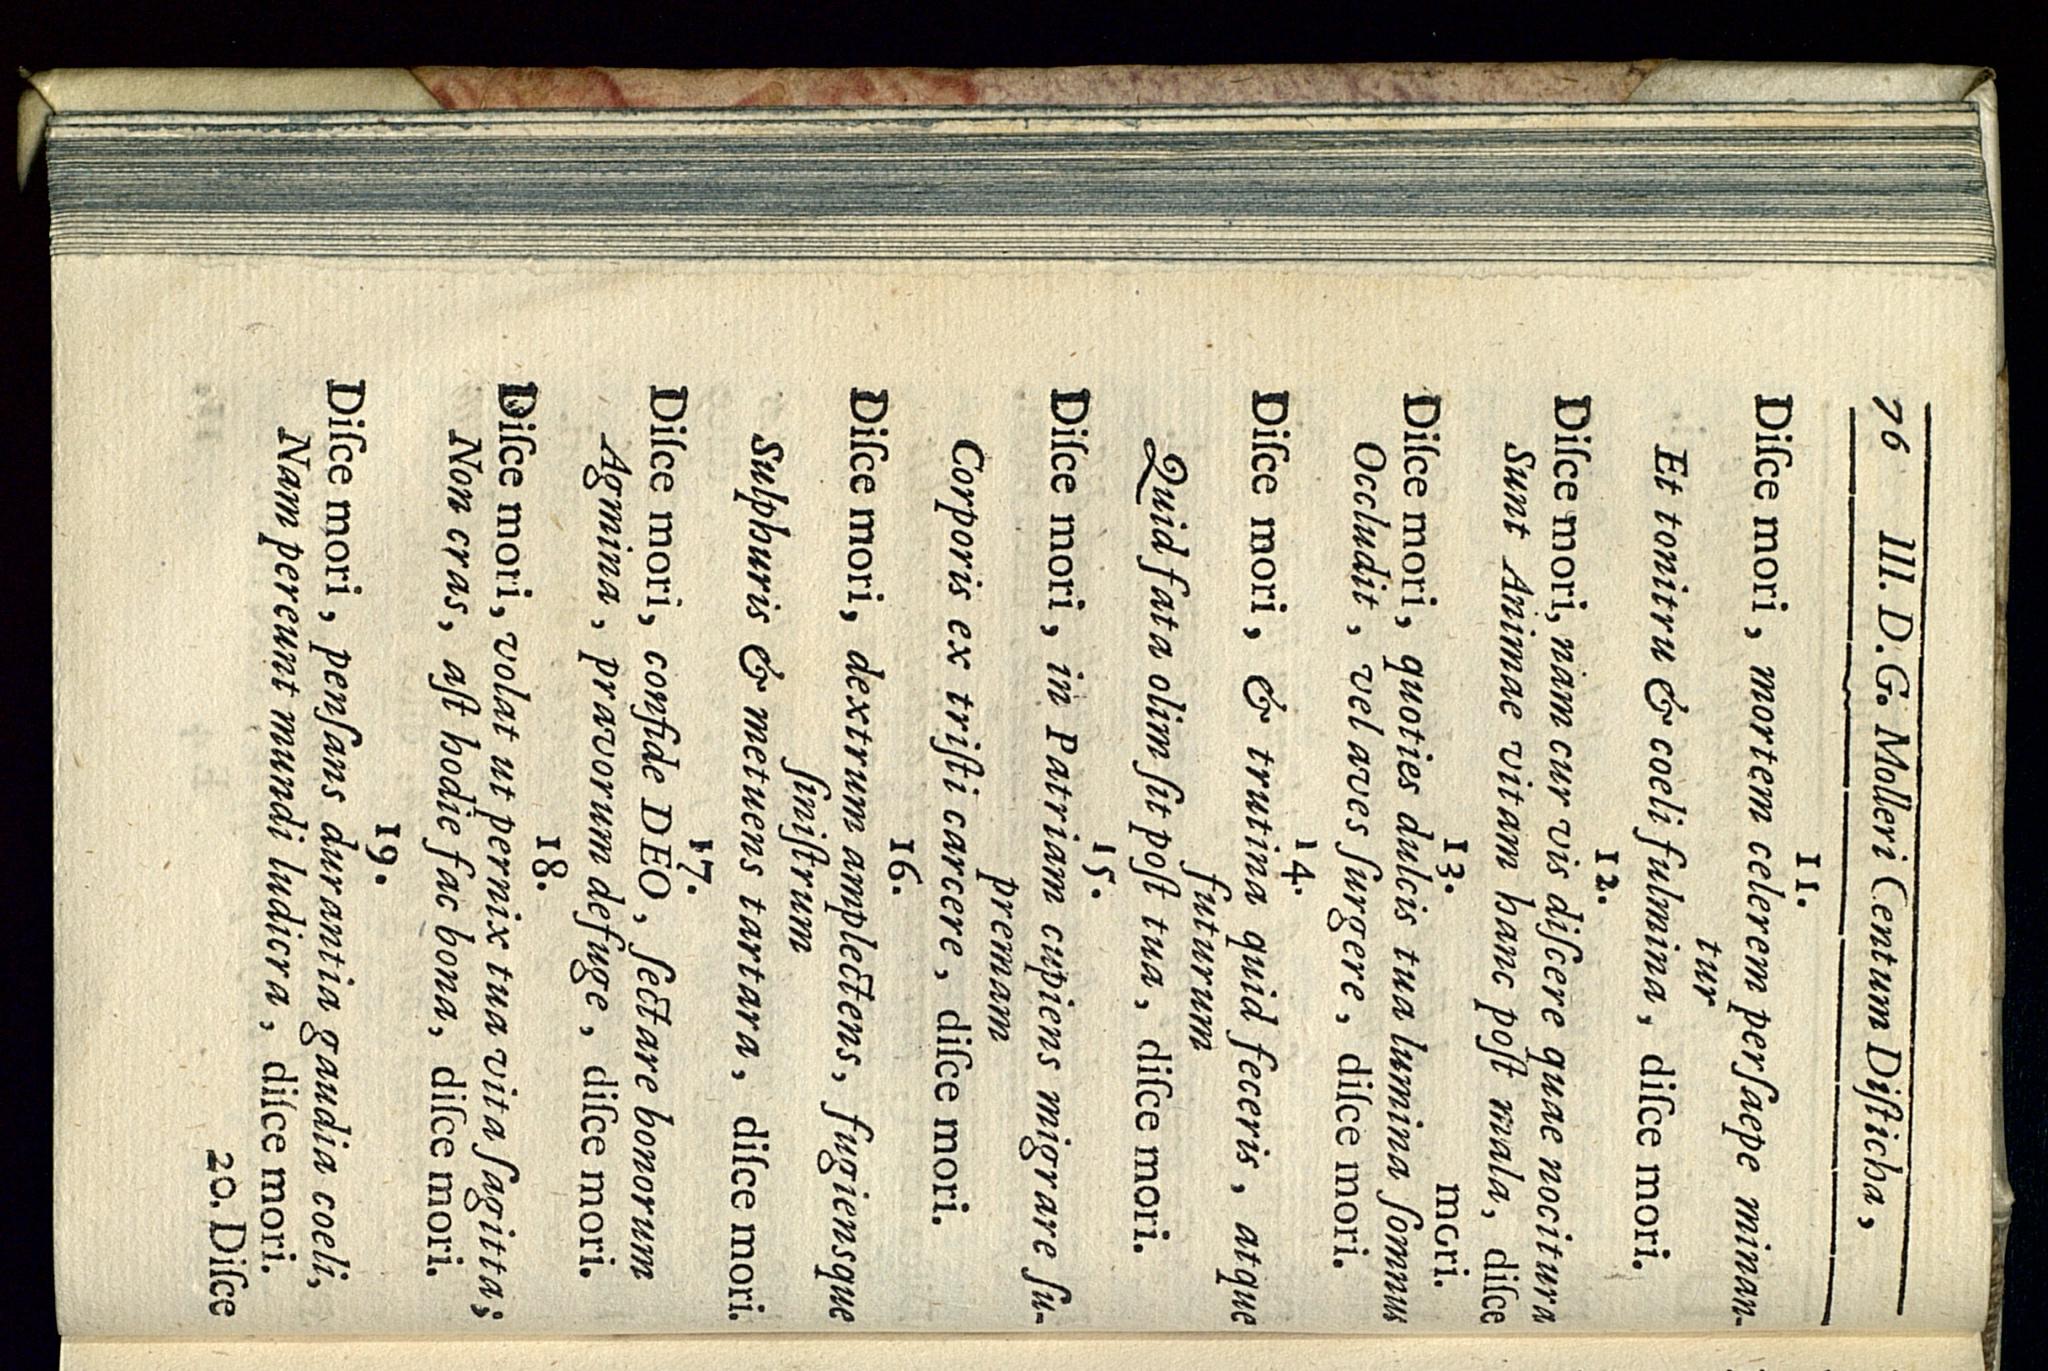 76 III. D. G. Molleri Centum Diſticha,
11.
Diſce mori, mortem celerem perſaepe minan-
tur
Et tonitru & coeli fulmina, diſce mori.
12.
Diſce mori, nam cur vis diſcere quae nocitura
Sunt Animae vitam hanc poſt mala, diſce
mori.
13.
Diſce mori, quoties dulcis tua lumina ſomnus
Occludit, vel aves ſurgere, diſce mori.
14.
Diſce mori, & trutina quid feceris, atque
futurum
Quid fata olim ſit poſt tua, diſce mori.
15.
Diſce mori, in Patriam cupiens migrare ſu-
premam
Corporis ex triſti carcere, diſce mori.
16.
Diſce mori, dextrum amplectens, fugiensque
ſiniſtrum
Sulphuris & metuens tartara, diſce mori.
17.
Diſce mori, confide DEO, ſectare bonorum
Agmina, pravorum defuge, diſce mori.
18.
Diſce mori, volat ut pernix tua vita ſagitta;
Non cras, aſt hodie fac bona, diſce mori.
19.
Diſce mori, penſans durantia gaudia coeli,
Nam pereunt mundi ludicra, diſce mori.
20. Diſce